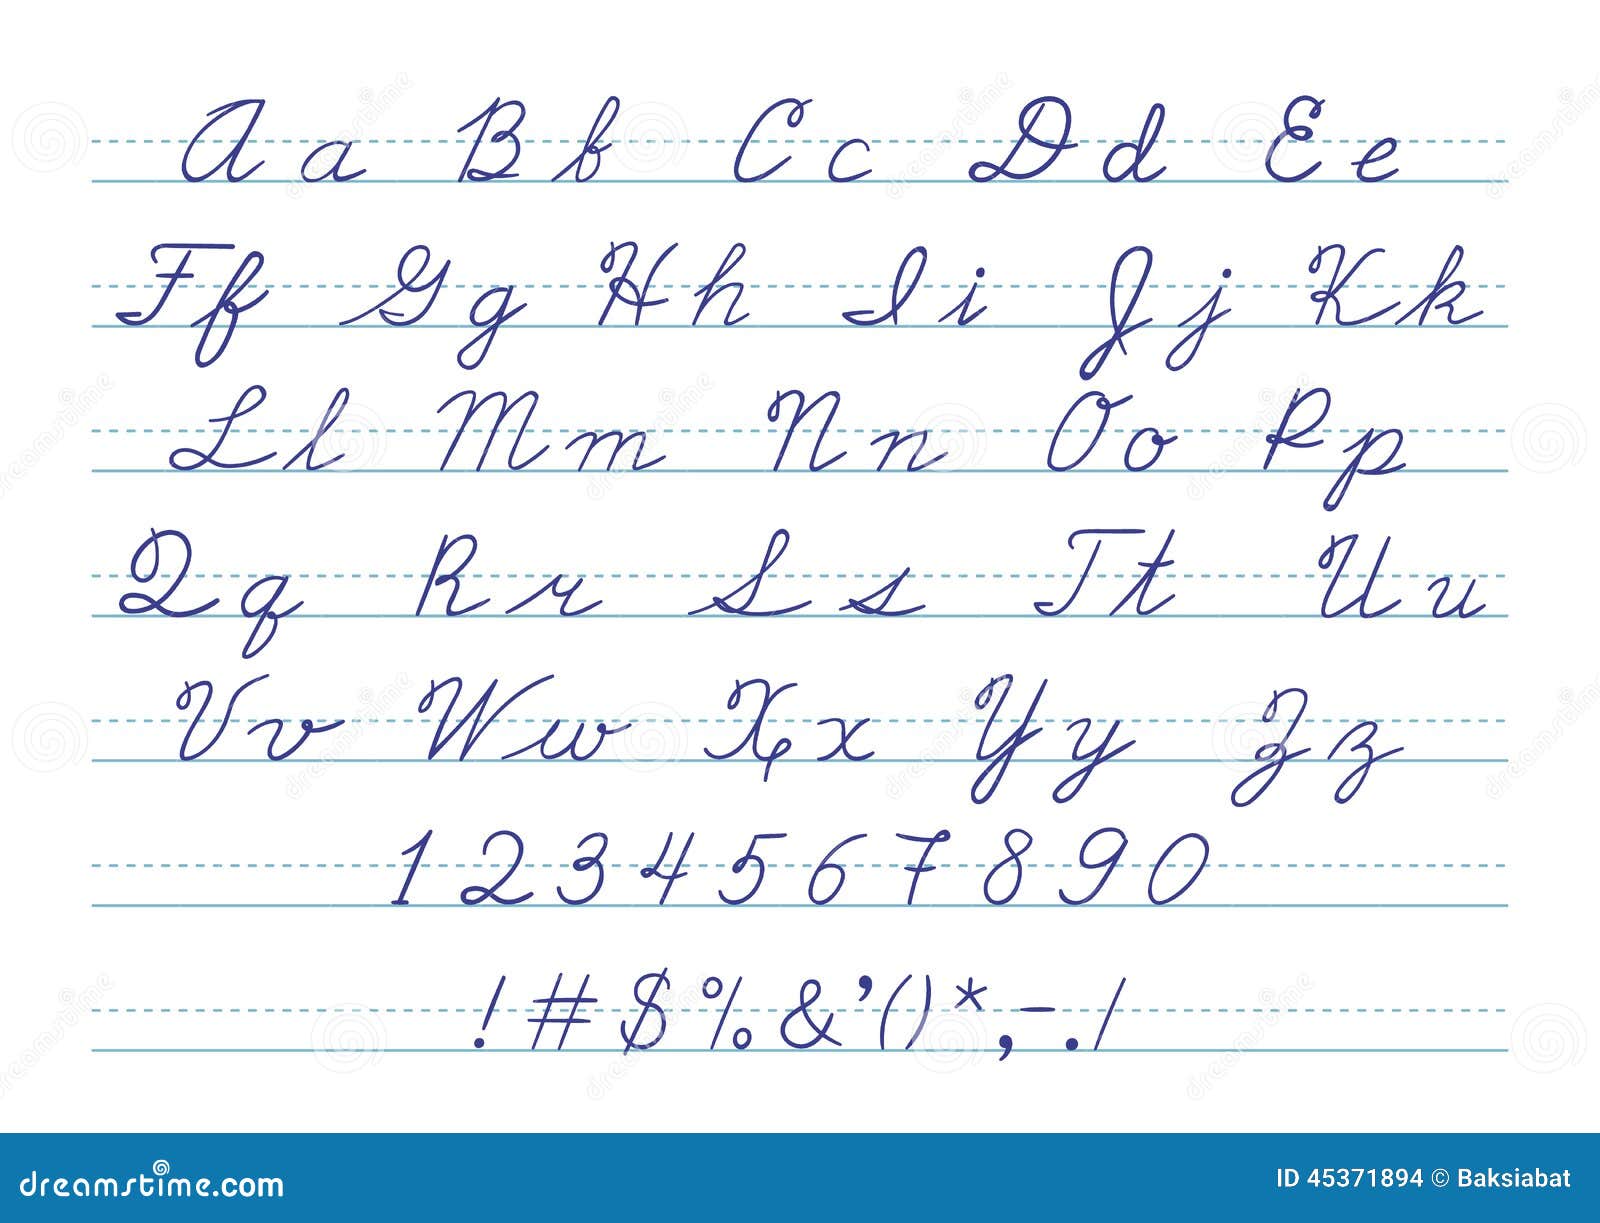 A a B b C c D d E e
F f G g H h I i J j K k
L l M m N n O o P p
Q q R r S s T t U u
V v W w X x Y y Z z
1 2 3 4 5 6 7 8 9 0
! # $ % & ’ ( ) * , - . /
dreamstime.com ID 45371894 © Baksiabat